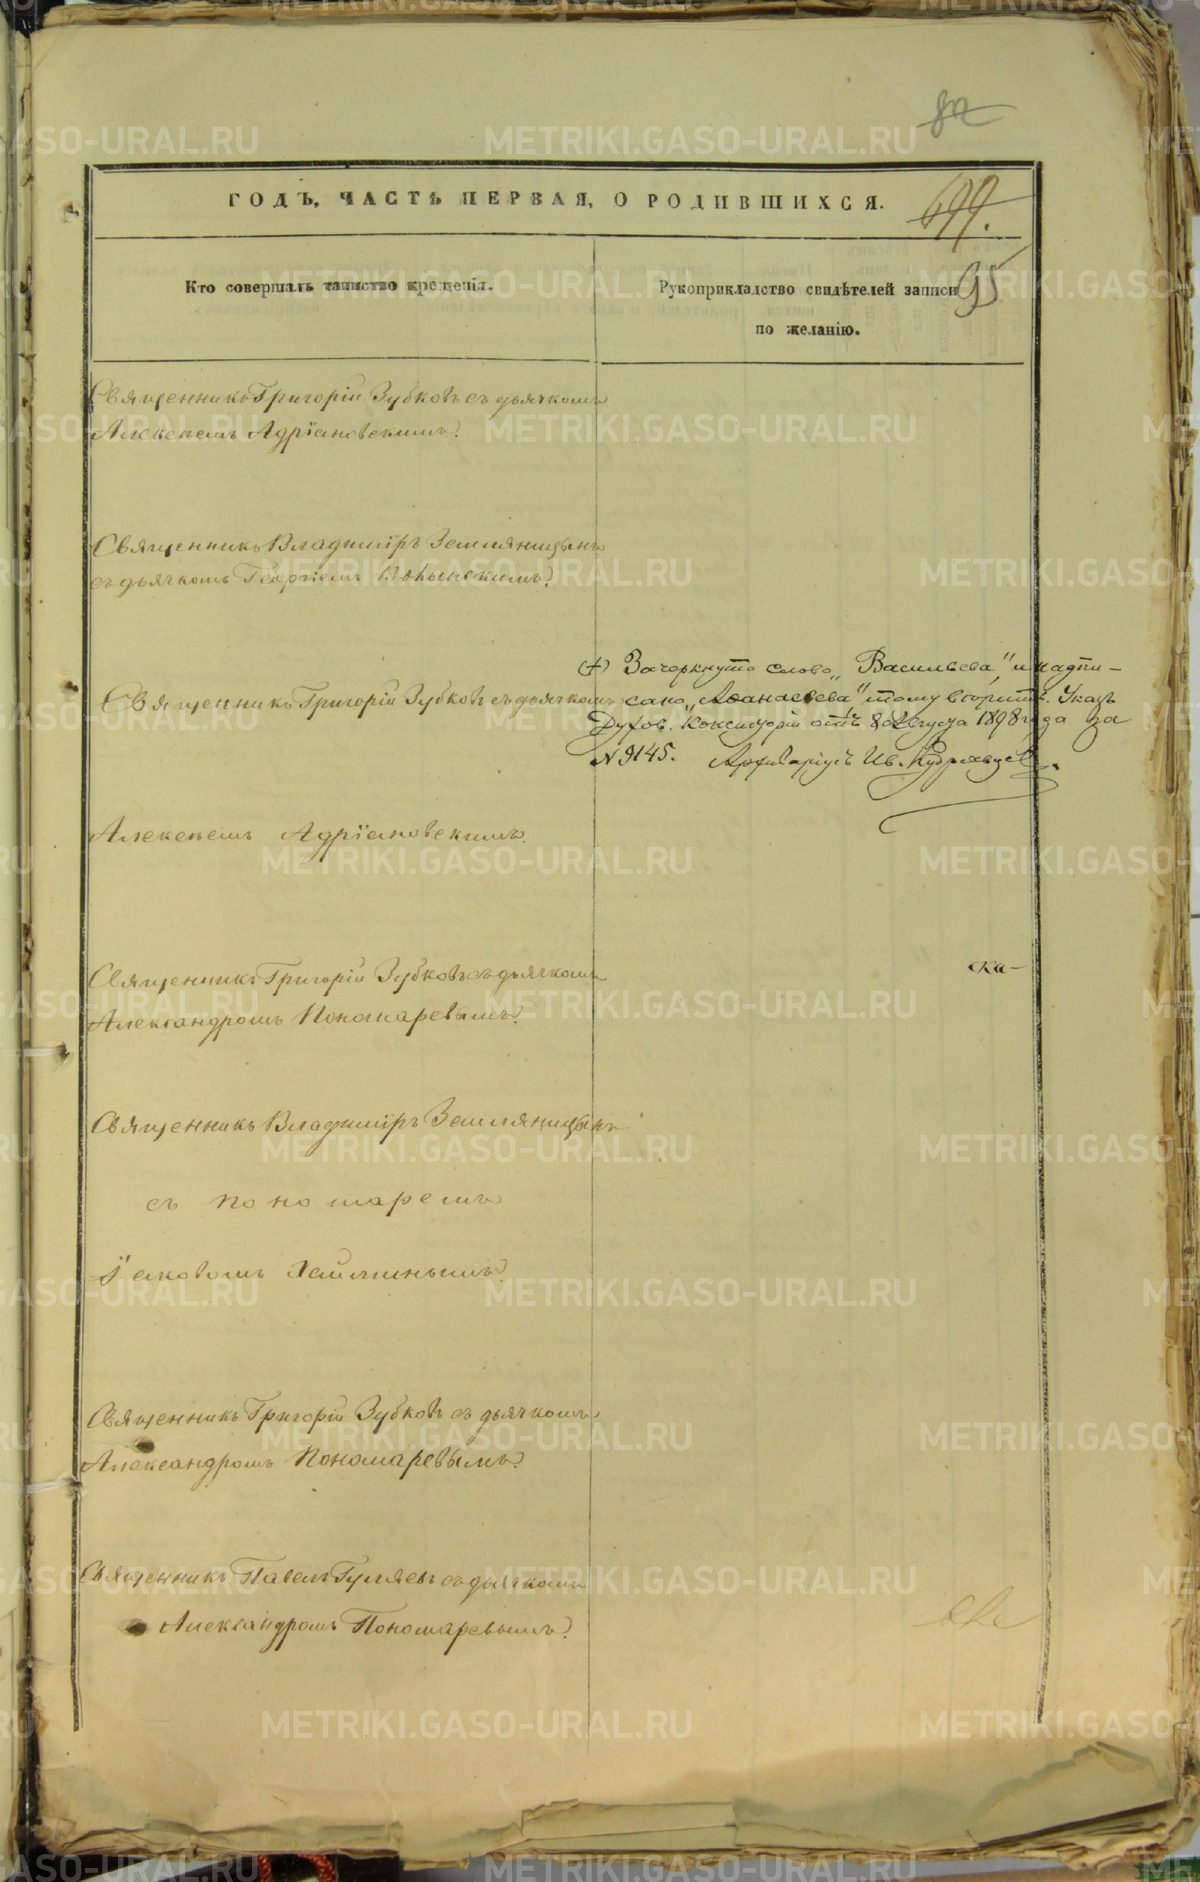 82
ГОДЪ, ЧАСТЬ ПЕРВАЯ, О РОДИВШИХСЯ.
699.
95
Кто совершалъ таинство крещенія.
Рукоприкладство свидѣтелей записи
по желанію.
Священникъ Григорій Зубковъ съ дьячкомъ
Алексѣемъ Адріановскимъ.
Священникъ Владиміръ Земляницынъ
съ дьячкомъ Георгіемъ
(+) Зачеркнуто слово „Васильева," и надпи-
Священникъ Григорій Зубковъ съ дьячкомъ
сано „Аѳанасьева" тому вѣрить. Указъ
Духов. Консисторіи отъ 8 Августа 1898 года за
№ 9145. Архиваріусъ Ив. Кудрявцев
Алексѣемъ Адріановскимъ.
Священникъ Григорій Зубковъ съ дьячкомъ
ка-
Александромъ Пономаревымъ.
Священникъ Владиміръ Земляницынъ
съ пономаремъ
Іаковомъ
Священникъ Григорій Зубковъ съ дьячкомъ
Александромъ Пономаревымъ.
Священникъ Павелъ Гуляевъ съ дьячкомъ
Александромъ Пономаревымъ.
METRIKI.GASO-URAL.RU